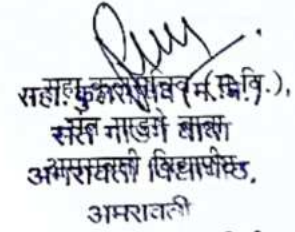 सहा. कुलसचिव (म.वि.),
संत गाडगे बाबा
अमरावती विद्यापीठ.
अमरावती